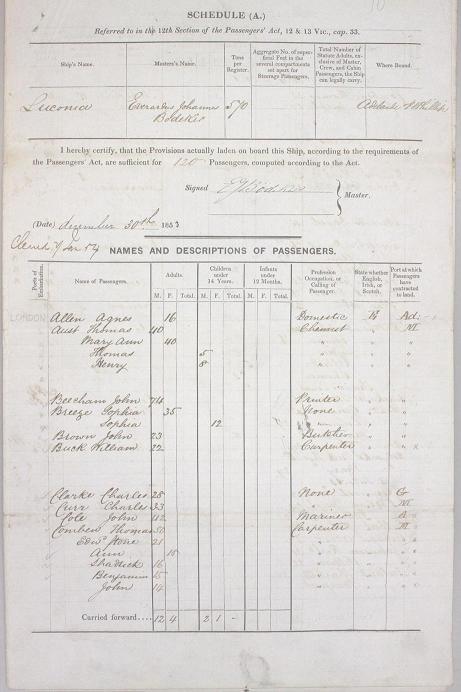 SCHEDULE (A.)
Referred to in the 12th Section of the Passengers' Act, 12 & 13 VIC., cap. 33.
Ship's Name. Master's Name. Tons per Register. Aggregate No. of superficial Feet in the several compartments set apart for Steerage Passengers. Total Number of Statute Adults, exclusive of Master, Crew, and Cabin Passengers, the Ship can legally carry. Where Bound.
Luconia Everardus Johannes Bodeker 570 Adelaide
I hereby certify, that the Provisions actually laden on board this Ship, according to the requirements of
the Passengers' Act, are sufficient for 120 Passengers, computed according to the Act.
Signed Master.
(Date) december 30th 1853
NAMES AND DESCRIPTIONS OF PASSENGERS.
Ports of Embarkation. Name of Passengers. Adults. Children under 14 Years. Infants under 12 Months. Profession Occupation, or Calling of Passenger. State whether English, Irish, or Scotch. Port at which Passengers have contracted to land.
M. F. Total. M. F. Total. M. F. Total.
LONDON
Allen Agnes 16 Domestic E Ad.
Aust Thomas 40 Chemist " M
Mary Ann 40 " " "
Thomas 5 " " "
Henry 8 " " "
Beecham John 74 Printer " "
Breeze Sophia 35 None " "
Sophia 12 " " "
Brown John 23 Butcher " "
Buck William 22 Carpenter " "
Clarke Charles 28 None " G
Curr Charles 33 " " M
Cole John 42 Mariner " A
Comben Thomas Carpenter " M
Edwd 21 " " "
Ann 15 " " "
Shadrick 16 " " "
Benjamin 15 " " "
John 14 " " "
Carried forward.... 12 4 2 1 -